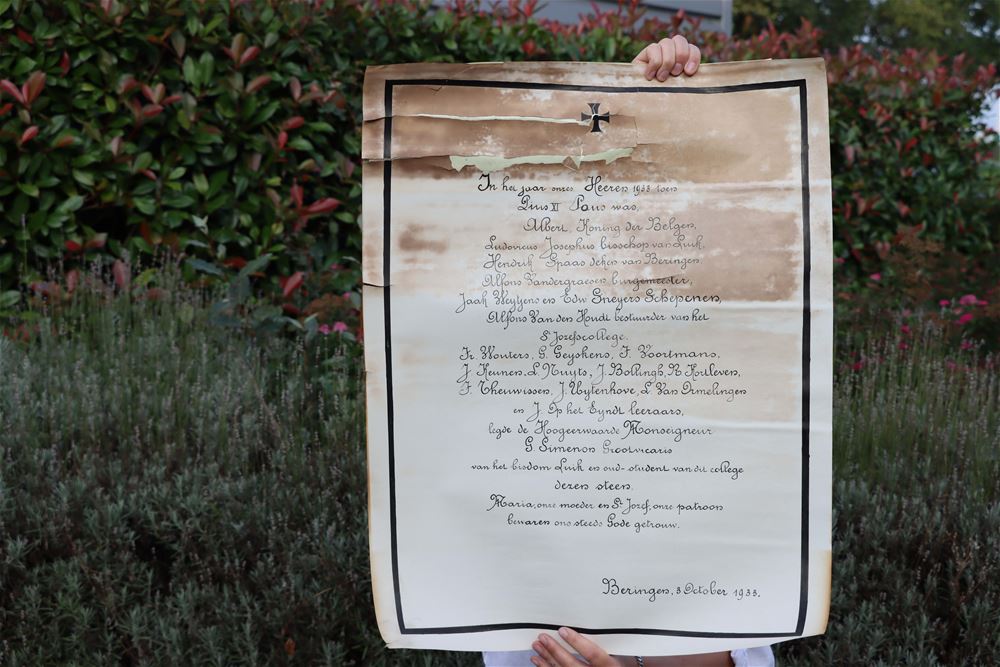 In het jaar onzes Heeren 1933 toen
Pius XI Paus was,
Albert, Koning der Belgen,
Ludovicus Josephus bisschop van Luik,
Hendrik Spaas deken van Beringen.
Alfons Vandergraesen burgemeester,
Jaak Weytjens en Edw Sneyers Schepenen,
Alfons Van den Houdt bestuurder van het
St Jozefscollege.
Fr. Wouters, G. Geyskens, F. Voortmans,
J. Keunen, L. Nuyts, J. Bollingh, R. Houleven,
F. Theuwissen, J. Uytenhove, L. Van Ormelingen
en J. Op het Eyndt leeraars,
legde de Hoogeerwaarde Monseigneur
G. Simenon Grootvicaris
van het bisdom Luik en oud-student van dit college
dezen steen.
Maria, onze moeder en St Jozef, onze patroon
bewaren ons steeds Gode getrouw.
Beringen, 3 October 1933.